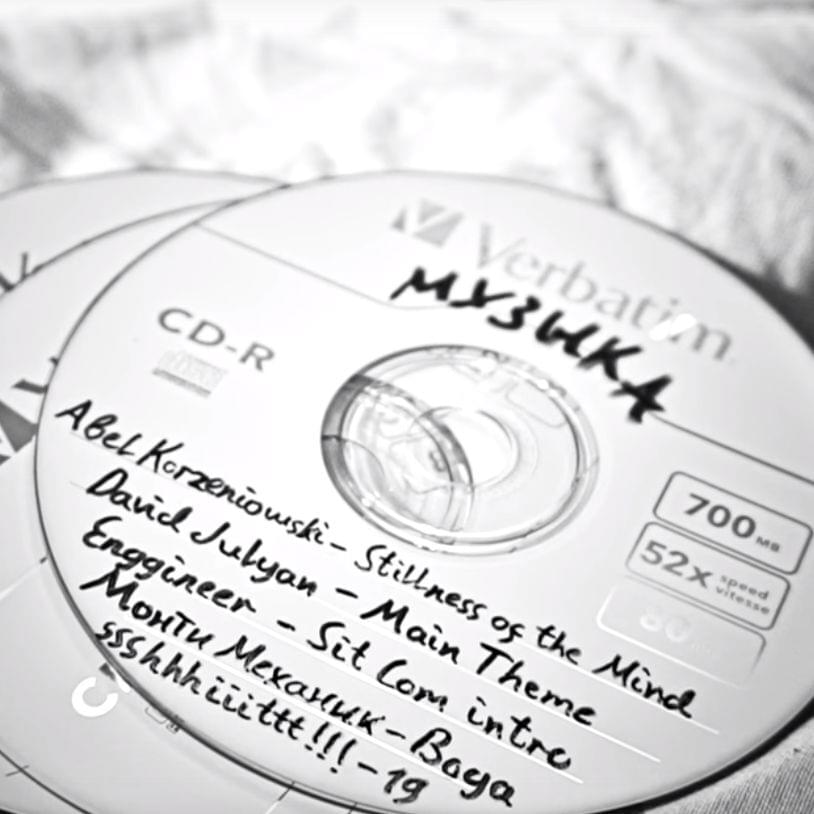 Verbatim
МУЗЫКА
CD-R
700 MB
52x speed vitesse
80
Abel Korzeniowski - Stillness of the Mind
David Julyan - Main Theme
Enggineer - Sit Com intro
Монти Механик - Вода
ssshhhiiittt!!! - 19